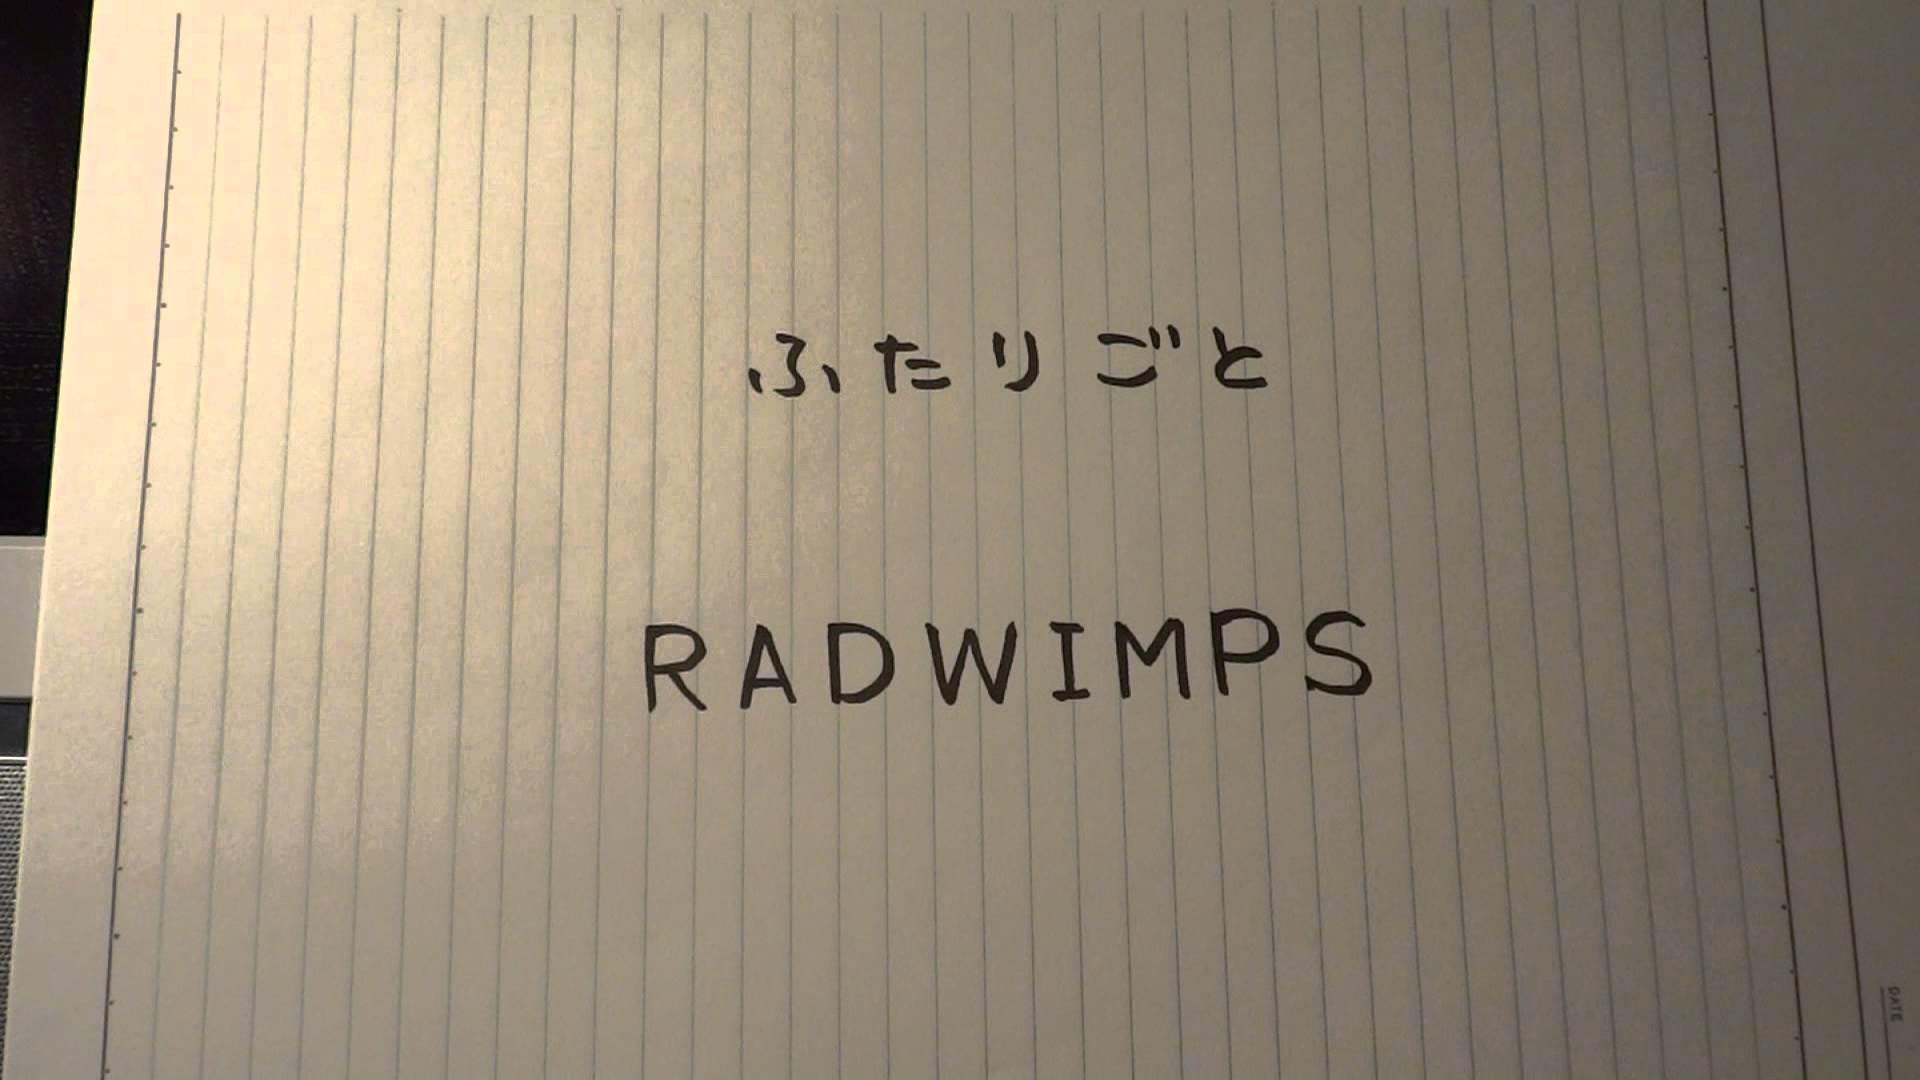 ふたりごと
RADWIMPS
DATE